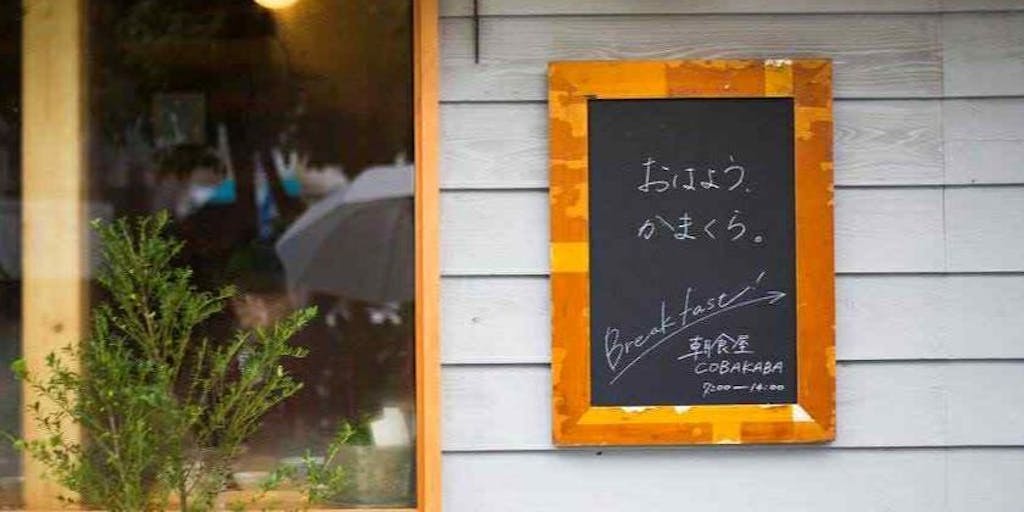 おはよう、
かまくら。
Breakfast!
朝食屋
COBAKABA
7:00—14:00